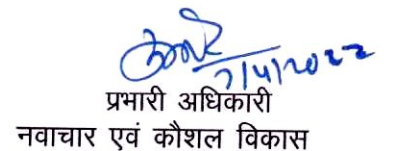 7/4/2022
प्रभारी अधिकारी
नवाचार एवं कौशल विकास